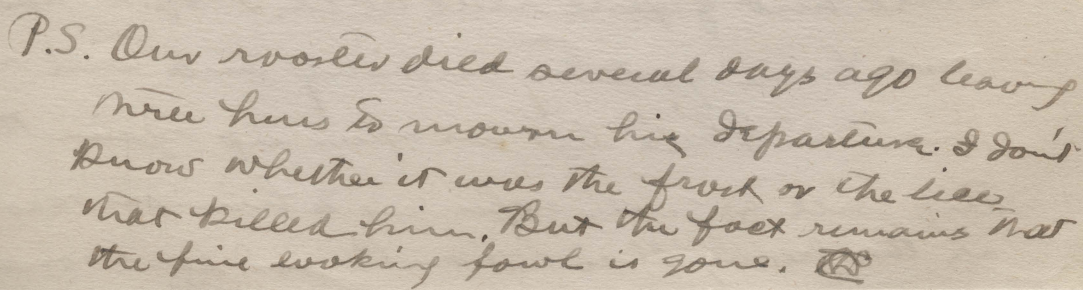 P.S. Our rooster died several days ago leaving
three hens to mourn his departure. I don't
know whether it was the frost or the lice
that killed him. But the fact remains that
the fine looking fowl is gone.